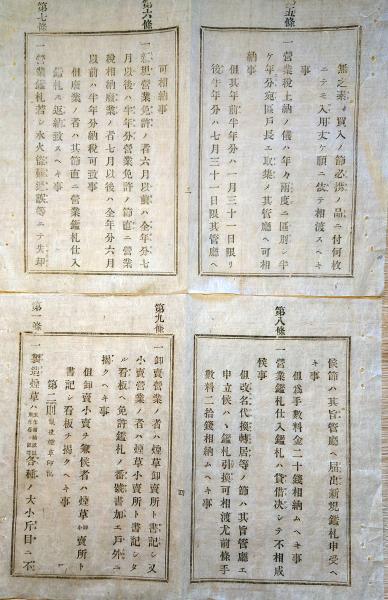 第五條
無之素ヨリ買入ノ節必携ノ品ニ付何枚
ニテモ入用丈ケ願ニ依テ相渡スヘキ
事
一 營業稅上納ノ儀ハ年々兩度ニ區別シ半
ケ年分宛區戶長ニ取集メ其管廳ヘ可相
納事
但其年前半年分ハ一月三十一日限リ
後半年分ハ七月三十一日限其管廳ヘ
可相納事
第六條
一 新規營業免許ノ者六月以前ハ全年分七
月以後ハ半年分營業免許ノ節直ニ營業
稅相納廢業ノ者七月以後ハ全年分六月
以前ハ半年分納稅可致事
但廢業ノ者ハ其節直ニ營業鑑札仕入
鑑札ヲ返納致スヘキ事
第七條
一 營業鑑札若シ水火盜難遺失等ニテ失却
候節ハ其旨管廳ヘ屆出新規鑑札申受ヘ
キ事
但爲手數料金二十錢相納ムヘキ事
第八條
營業鑑札仕入鑑札ハ貸借決シテ不相成
候事
但改名代換轉居等ノ節ハ其旨管廳ヱ
申立候ハヽ鑑札引換可相渡尤前條手
數料二拾錢相納ムヘキ事
第九條
一 卸賣營業ノ者ハ煙草卸賣所ト書記シ又
小賣營業ノ者ハ煙草小賣所ト書記シタ
ル看板ヘ免許鑑札ノ番號書加エ戶外ニ
揭クヘキ事
但卸賣小賣ヲ兼候者ハ煙草卸小賣所ト
書記シ看板ヲ揭クヘキ事
第二則 製造煙草印紙
第一條
一 製造煙草ハ 各種ノ大小斤目ニ不